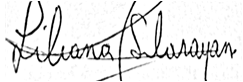 Liliana Silarayan